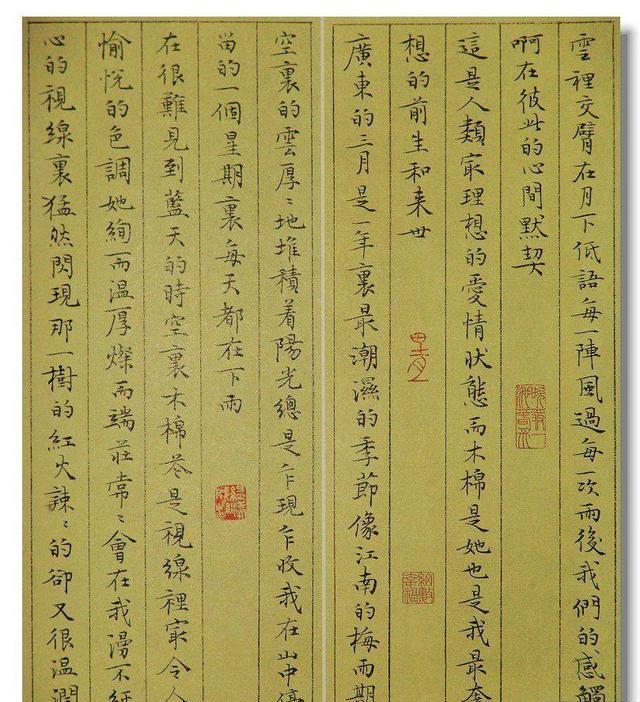 雲裡交臂在月下低語每一陣風過每一次雨後我們的感觸
啊在彼此的心間默契
這是人類最理想的愛情狀態而木棉是她也是我最奢
想的前生和来世
廣東的三月是一年裏最潮濕的季節像江南的梅雨期
空裏的雲厚〻地堆積着陽光總是乍現乍收我在山中停
留的一個星期裏每天都在下雨
在很難見到藍天的時空裏木棉花是視線裡最令人
愉悅的色調她絢而温厚燦而端莊常〻會在我漫不經
心的視線裏猛然閃現那一樹的紅火辣〻的卻又很温潤